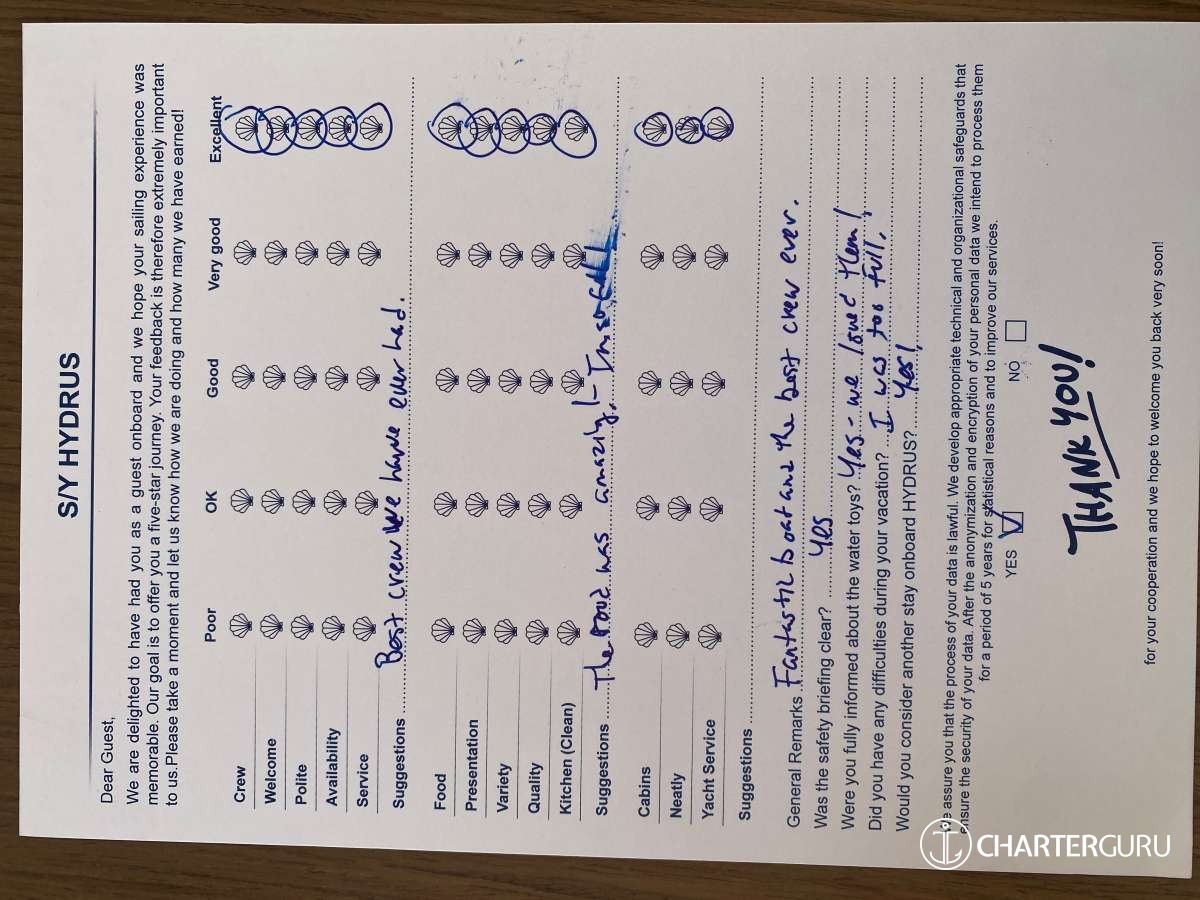 S/Y HYDRUS
Dear Guest,
We are delighted to have had you as a guest onboard and we hope your sailing experience was
memorable. Our goal is to offer you a five-star journey. Your feedback is therefore extremely important
to us.Please take a moment and let us know how we are doing and how many we have earned!
Poor OK Good Very good Excellent
Crew
Welcome
Polite
Availability
Service
Suggestions Best crew we have ever had.
Food
Presentation
Variety
Quality
Kitchen (Clean)
Suggestions The food was amazing! -
Cabins
Neatly
Yacht Service
Suggestions
General Remarks Fantastic boat and the best crew ever.
Was the safety briefing clear? Yes
Were you fully informed about the water toys? Yes - we loved them!
Did you have any difficulties during your vacation? I was too full.
Would you consider another stay onboard HYDRUS? Yes!
We assure you that the process of your data is lawful. We develop appropriate technical and organizational safeguards that
ensure the security of your data. After the anonymization and encryption of your personal data we intend to process them
for a period of 5 years for statistical reasons and to improve our services.
YES NO
THANK YOU!
for your cooperation and we hope to welcome you back very soon!
CHARTERGURU